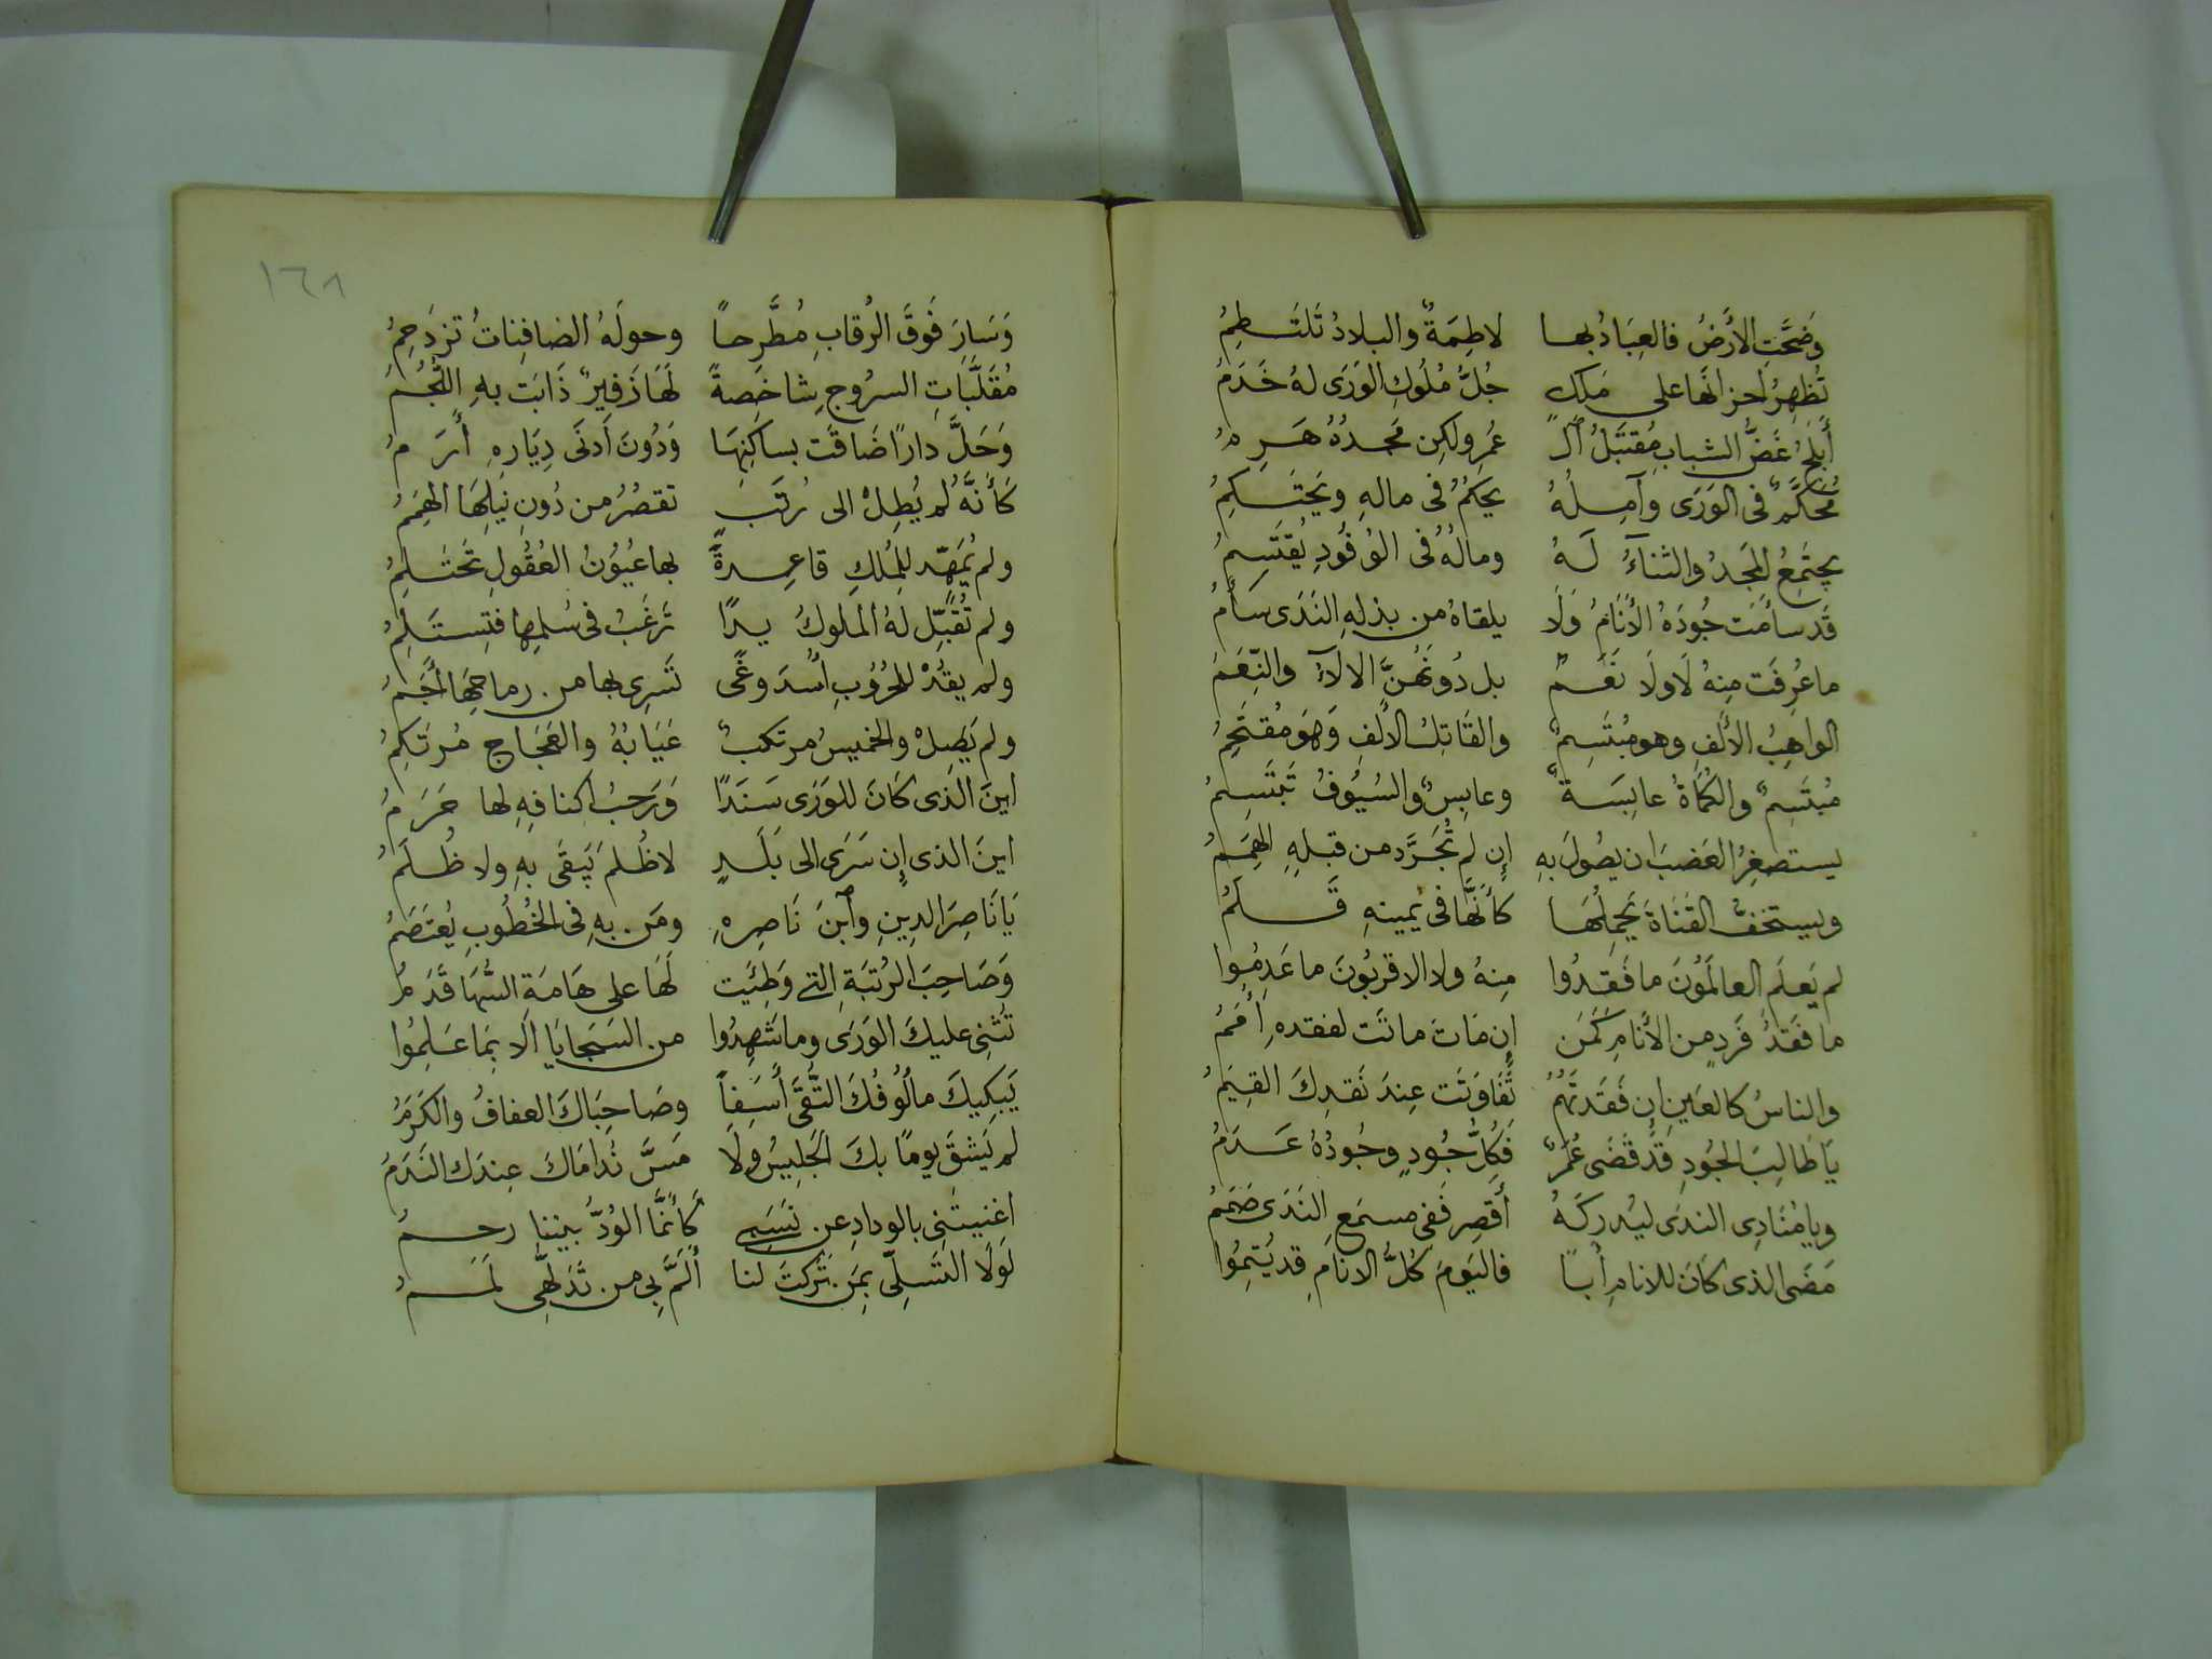 وَضَجَّتِ الأَرضُ فالعِبَادُ بها لاطِمَةٌ والبلادُ تَلتَطِمُ
تُظهِرُ احزانَها على مَلكٍ جُلُّ مُلُوكِ الوَرَى لهُ خَدَمُ
أَبلَجُ غَضُّ الشبابِ مُقتَبَلُ ٱلـ عُمرِ ولكِن مَجدُهُ هَرِمُ
مُحَكَّمٌ فى الوَرَى وآمِلُهُ يحكُمُ فى مالهِ ويَحتَكِمُ
يجتَمِعُ المَجدُ والثناءُ لَهُ ومالُهُ فى الوُفُودِ يُقتَسِمُ
قَد سأَمَت جُودَهُ الأَنَامُ وَلَا يلقاهُ من بذلهِ النَدَى سَأَمُ
ما عُرِفَت مِنهُ لَا ولَا نَعَمٌ بل دُونَهُنَّ الالآءُ والنِّعَمُ
الواهِبُ الأَلفِ وهو مُبتَسِمٌ والقَاتِلُ الأَلفِ وَهوَ مُقتَحِمُ
مُبتَسِمٌ والكُمَاةُ عابِسَةٌ وعابِسٌ والسُيُوفُ تَبتَسِمُ
يستصغِرُ العَضبَ ان يصُولَ بهِ إِن لم تُجَرَّد من قبلهِ الهِمَمُ
ويستخفُّ القَنَاةَ يَحمِلُهَا كأَنَّهَا فى يَمينهِ قَلَمُ
لم يَعلَمِ العالَمُونَ ما فَقَدُوا مِنهُ ولا الاقرَبُونَ ما عَدِمُوا
ما فَقدُ فَردٍ من الأَنَامِ كَمَن إِن مَاتَ ماتَت لفقدهِ أُمَمُ
والناسُ كالعَينِ إِن فَقَدتَهُمُ تَفَاوَتَت عِندَ نَقدِكَ القِيَمُ
يا طَالِبَ الجُودِ قَد قَضَى عُمَرٌ فَكُلُّ جُودٍ وجُودُهُ عَدَمُ
ويا مُنَادِى الندَى ليُدرِكَهُ أَقصِر فَفى مسمَعِ النَدَى صَمَمُ
مَضَى الذى كَانَ للانامِ أَباً فاليَومَ كُلُّ الانَامِ قد يُتِمُوا
١٦٨
وَسَارَ فَوقَ الرُقابِ مُطَّرِحاً وحولَهُ الصَافِنَاتُ تزدَحِمُ
مُقَلَّبَاتِ السرُوجِ شاخِصةً لَهَا زَفِيرٌ ذَابَت بهِ اللُّجُمُ
وَحَلَّ داراً ضَاقَت بساكِنِهَا وَدُونَ أَدنَى دِيَارهِ أَرَمُ
كَأَنَّهُ لم يُطِلْ الى رُتَبٍ تقصُرُ من دُونِ نَيلِهَا الهِمَمُ
ولم يُمَهّد لِلمُلكِ قاعِدةً بها عُيُوُنُ العُقُولِ تَحتَلِمُ
ولم تُقَبِّل لهُ الملوكُ يداً تَرَغَبُ فى سلمِها فتِستَلِمُ
ولم يقُدْ للحُرُوبِ أُسدَ وغًى تَسرِى بها من رماحِهَا أَجَمُ
ولم يَصِلْ والخميسُ مرتكبٌ عَبَابُهُ والعَجَاج مُرتَكِمُ
اينَ الَذى كَانَ للوَرَى سَنَدًا وَرَحبُ اكنافِهِ لها حَرَمُ
اينَ الذى إِن سَرَى الى بَلَدٍ لا ظُلمَ يَبقَى بهِ ولا ظُلَمُ
يَا نَاصِرَ الدِينِ وٱبنَ نَاصِرِهِ ومَن بهِ فى الخُطُوبِ يُعتَصَمُ
وَصَاحِبَ الرُتبَةِ التي وَطِئَيت لَهَا على هَامَةِ السُّهَا قَدَمُ
تُثنِى عليكَ الوَرَى وما شَهِدُوا من السَجايَا الا بمَا عَلِمُوا
يَبكِيكَ مأَلُوفُكَ التُّقَى أَسَفِاً وصَاحِبَاكَ العفافُ والكَرَمُ
لم يَشقَ يوماً بكَ الجَليسُ ولَا مَسَّ نُدَامَاكَ عِندَك النَدَمُ
اغنيتَنِى بالودادِ عن نَسَبِى كَأَنَّمَا الوُدُّ بيننا رحِمُ
لَولَا التَسَلِّى بمَن تَرَكتَ لنا أَلَمَّ بى من تَدَلُّهِى لَمَمُ